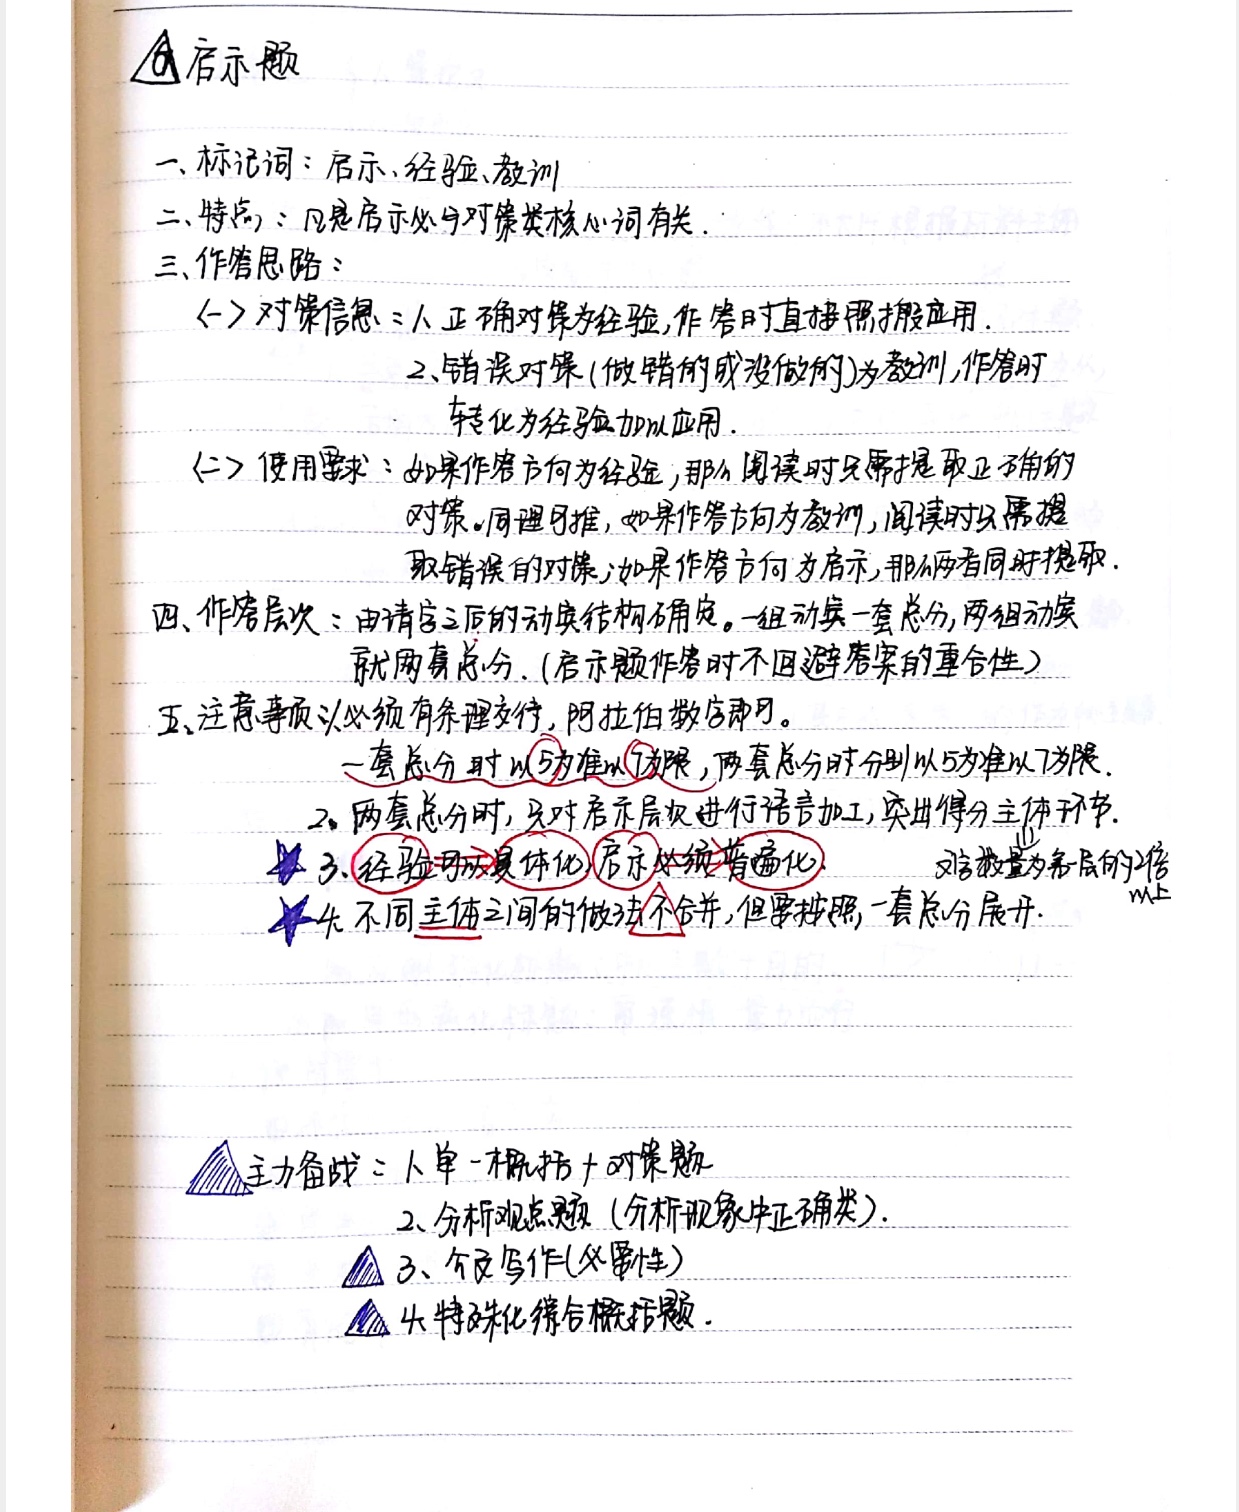 启示题
一、标记词：启示、经验、教训
二、特点：凡是启示必与对策类核心词有关.
三、作答思路：
<一>对策信息：1、正确对策为经验,作答时直接照搬应用.
2、错误对策(做错的或没做的)为教训,作答时
转化为经验加以应用.
<二>使用要求：如果作答方向为经验,那么阅读时只需提取正确的
对策。同理可推,如果作答方向为教训,阅读时只需提
取错误的对策;如果作答方向为启示,那么两者同时提取.
四、作答层次：由请字之后的动宾结构确定。一组动宾一套总分,两组动宾
就两套总分.(启示题作答时不回避答案的重合性)
五、注意事项:1、必须有条理交行,阿拉伯数字即可。
一套总分时以5为准以7为限,两套总分时分别以5为准以7为限.
2、两套总分时,只对启示层次进行语言加工,突出得分主体环节.
3、经验可以具体化,启示必须普遍化.
文字数量为第一层的2倍
以上
4、不同主体之间的做法不合并,但要按照,一套总分展开.
主力备战：1、单一概括+对策题
2、分析观点题(分析现象中正确类).
3、公文写作(必要性)
4、特殊化综合概括题.